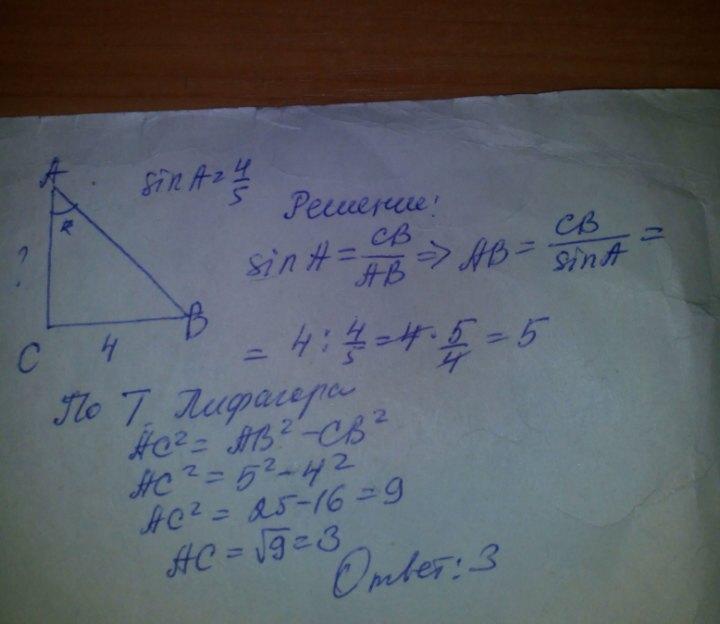 A
sin A = 4/5
α
?
C
4
B
Решение:
sin A = CB/AB => AB = CB/sin A =
= 4 : 4/5 = 4 · 5/4 = 5
По Т. Пифагора
AC² = AB² - CB²
AC² = 5² - 4²
AC² = 25 - 16 = 9
AC = √9 = 3
Ответ: 3